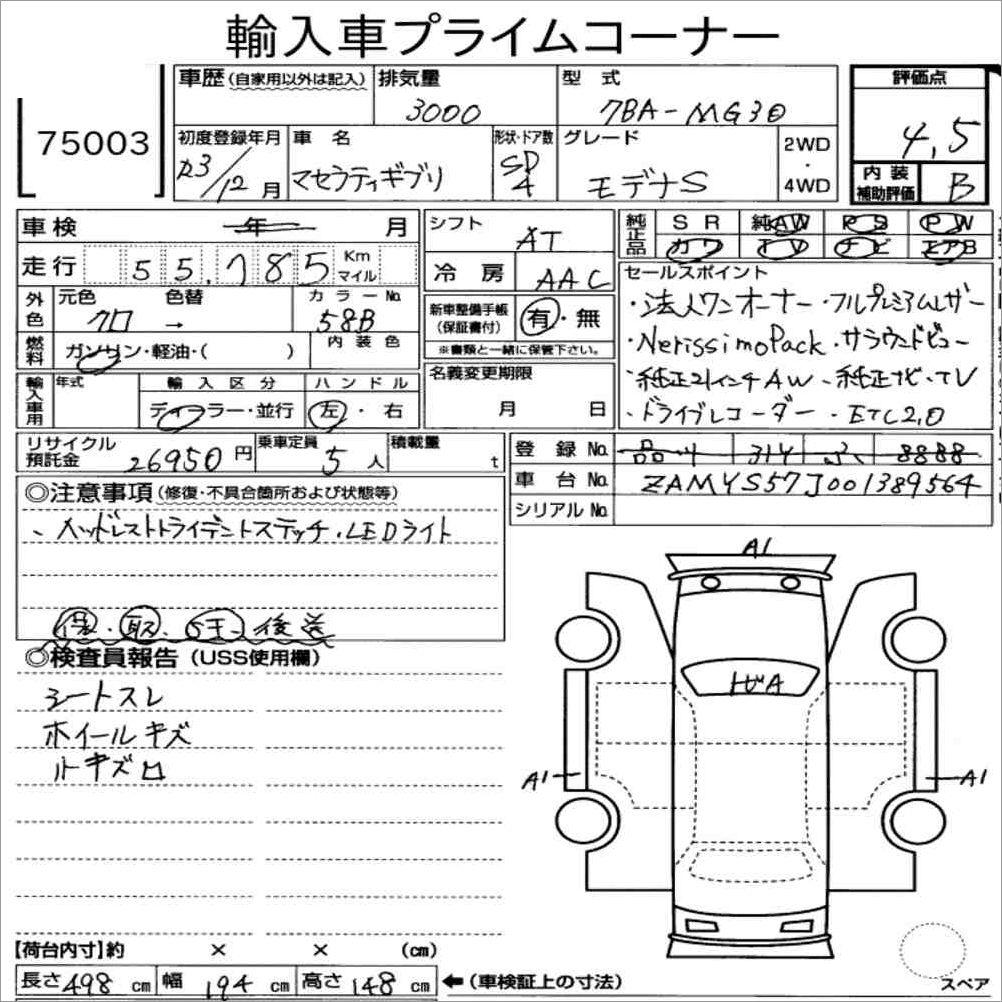 輸入車プライムコーナー
75003
車歴(自家用以外は記入) 排気量 3000 型式 7BA-MG30 評価点 4,5
初度登録年月 R3/12月 車名 マセラティギブリ 形状・ドア数 SD 4 グレード モデナS 2WD・4WD 内装補助評価 B
車検 年 月 シフト AT 純正品 SR 純AW PS PW
走行 55,785 Km マイル 冷房 AAC カワ TV ナビ エアB
外色 元色 クロ 色替 → カラーNo. 58B 新車整備手帳(保証書付) 有・無
燃料 ガソリン・軽油・( ) 内装色 ※書類と一緒に保管下さい。
輸入車用 年式 輸入区分 ディーラー・並行 ハンドル 左・右 名義変更期限 月 日
セールスポイント
・法人ワンオーナー・フルプレミアムレザー
・NerissimoPack・サラウンドビュー
・純正21インチAW・純正ナビ・TV
・ドライブレコーダー・ETC2.0
リサイクル預託金 26950円 乗車定員 5人 積載量 t
登録No. 品川 314 ふ 8888
車台No. ZAMYS57J001389564
シリアルNo.
◎注意事項(修復・不具合箇所および状態等)
・ヘッドレストトライデントステッチ・LEDライト
保・取・ 後送
◎検査員報告(USS使用欄)
シートスレ
ホイールキズ
A1
トビA
A1
A1
【荷台内寸】約 × × (cm)
長さ 498 cm 幅 194 cm 高さ 148 cm ←(車検証上の寸法)
スペア